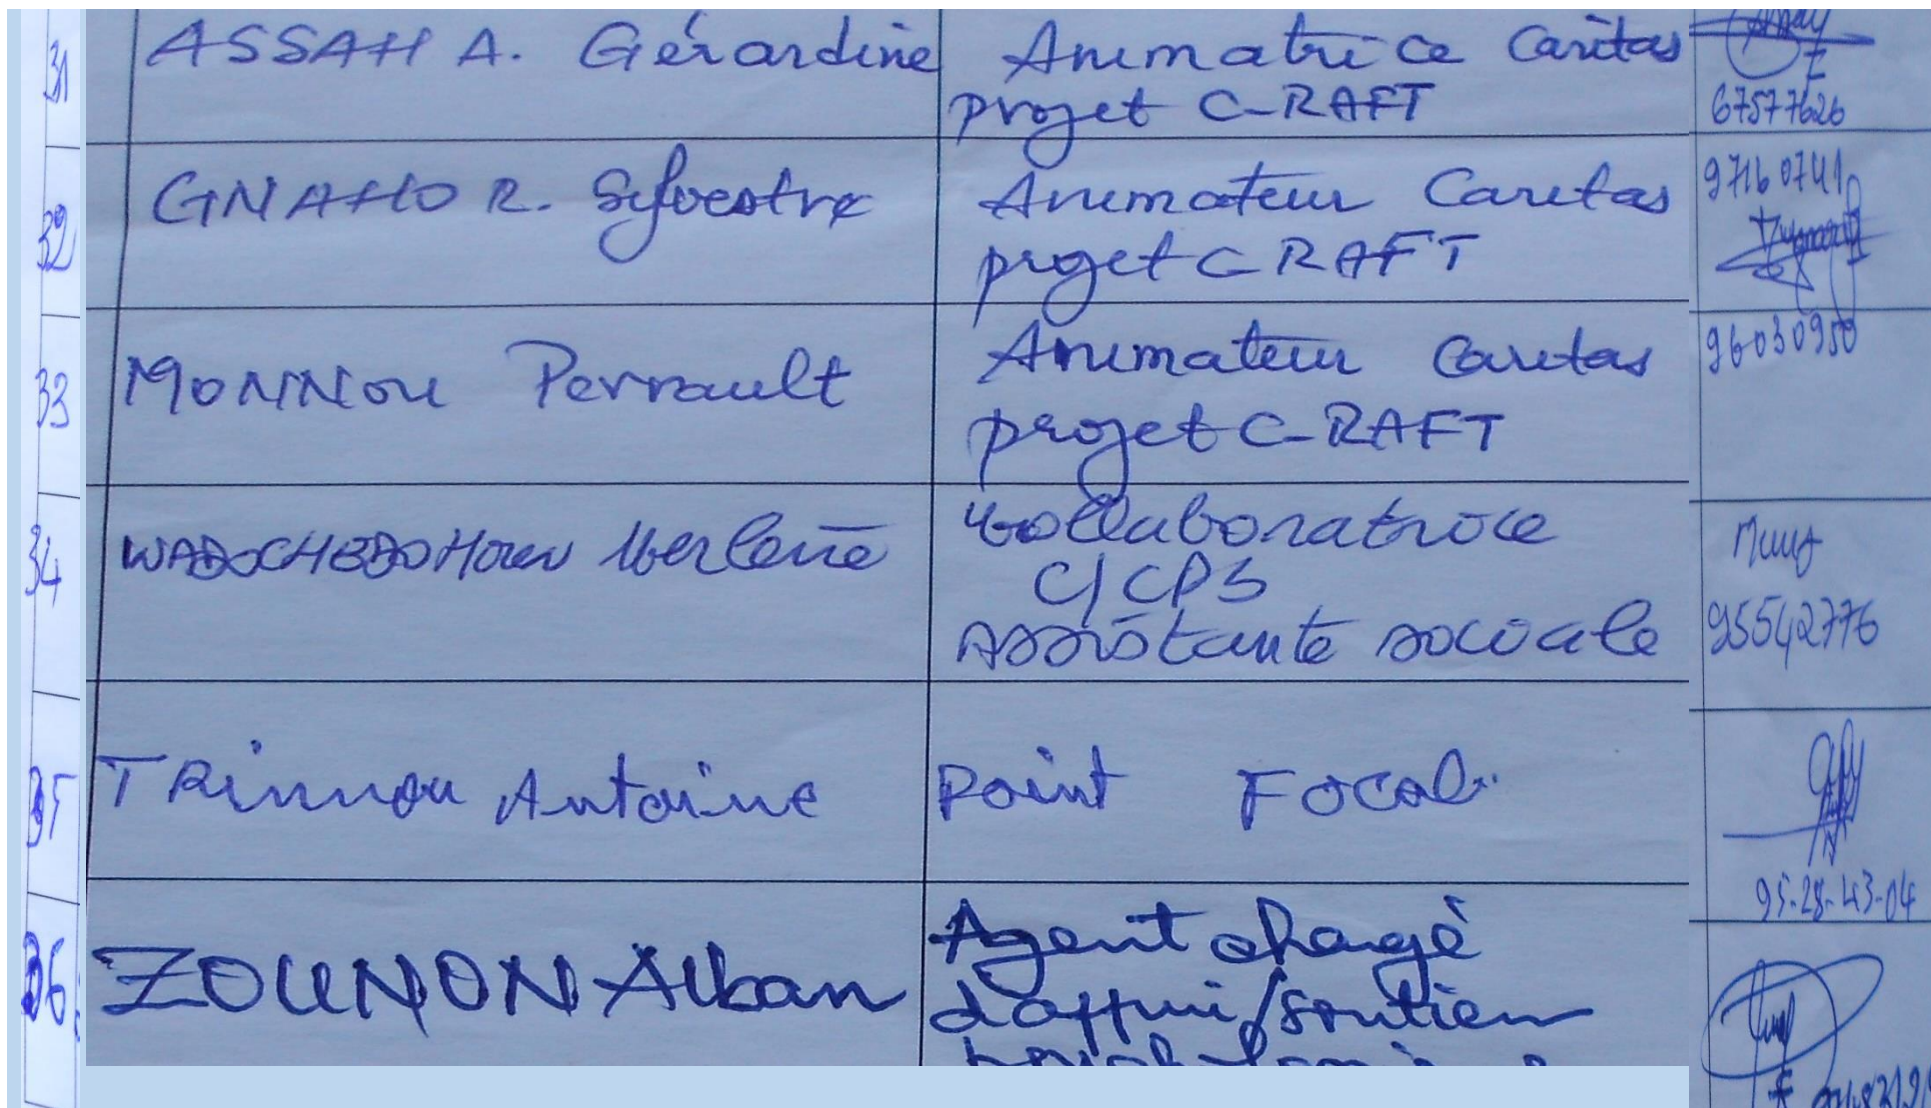 31 ASSAH A. Gérardine Animatrice Caritas
projet C-RAFT
67577626
32 GNAHO R. Sylvestre Animateur Caritas
projet C RAFT
97160741
33 MONNOU Perrault Animateur Caritas
projet C-RAFT
96030950
34 Collaboratrice
C/CPS
Assistante sociale
95542776
35 TRinnou Antoine Point Focal
95-28-43-04
36 ZOUNON Alban Agent chargé
d'appui/soutien